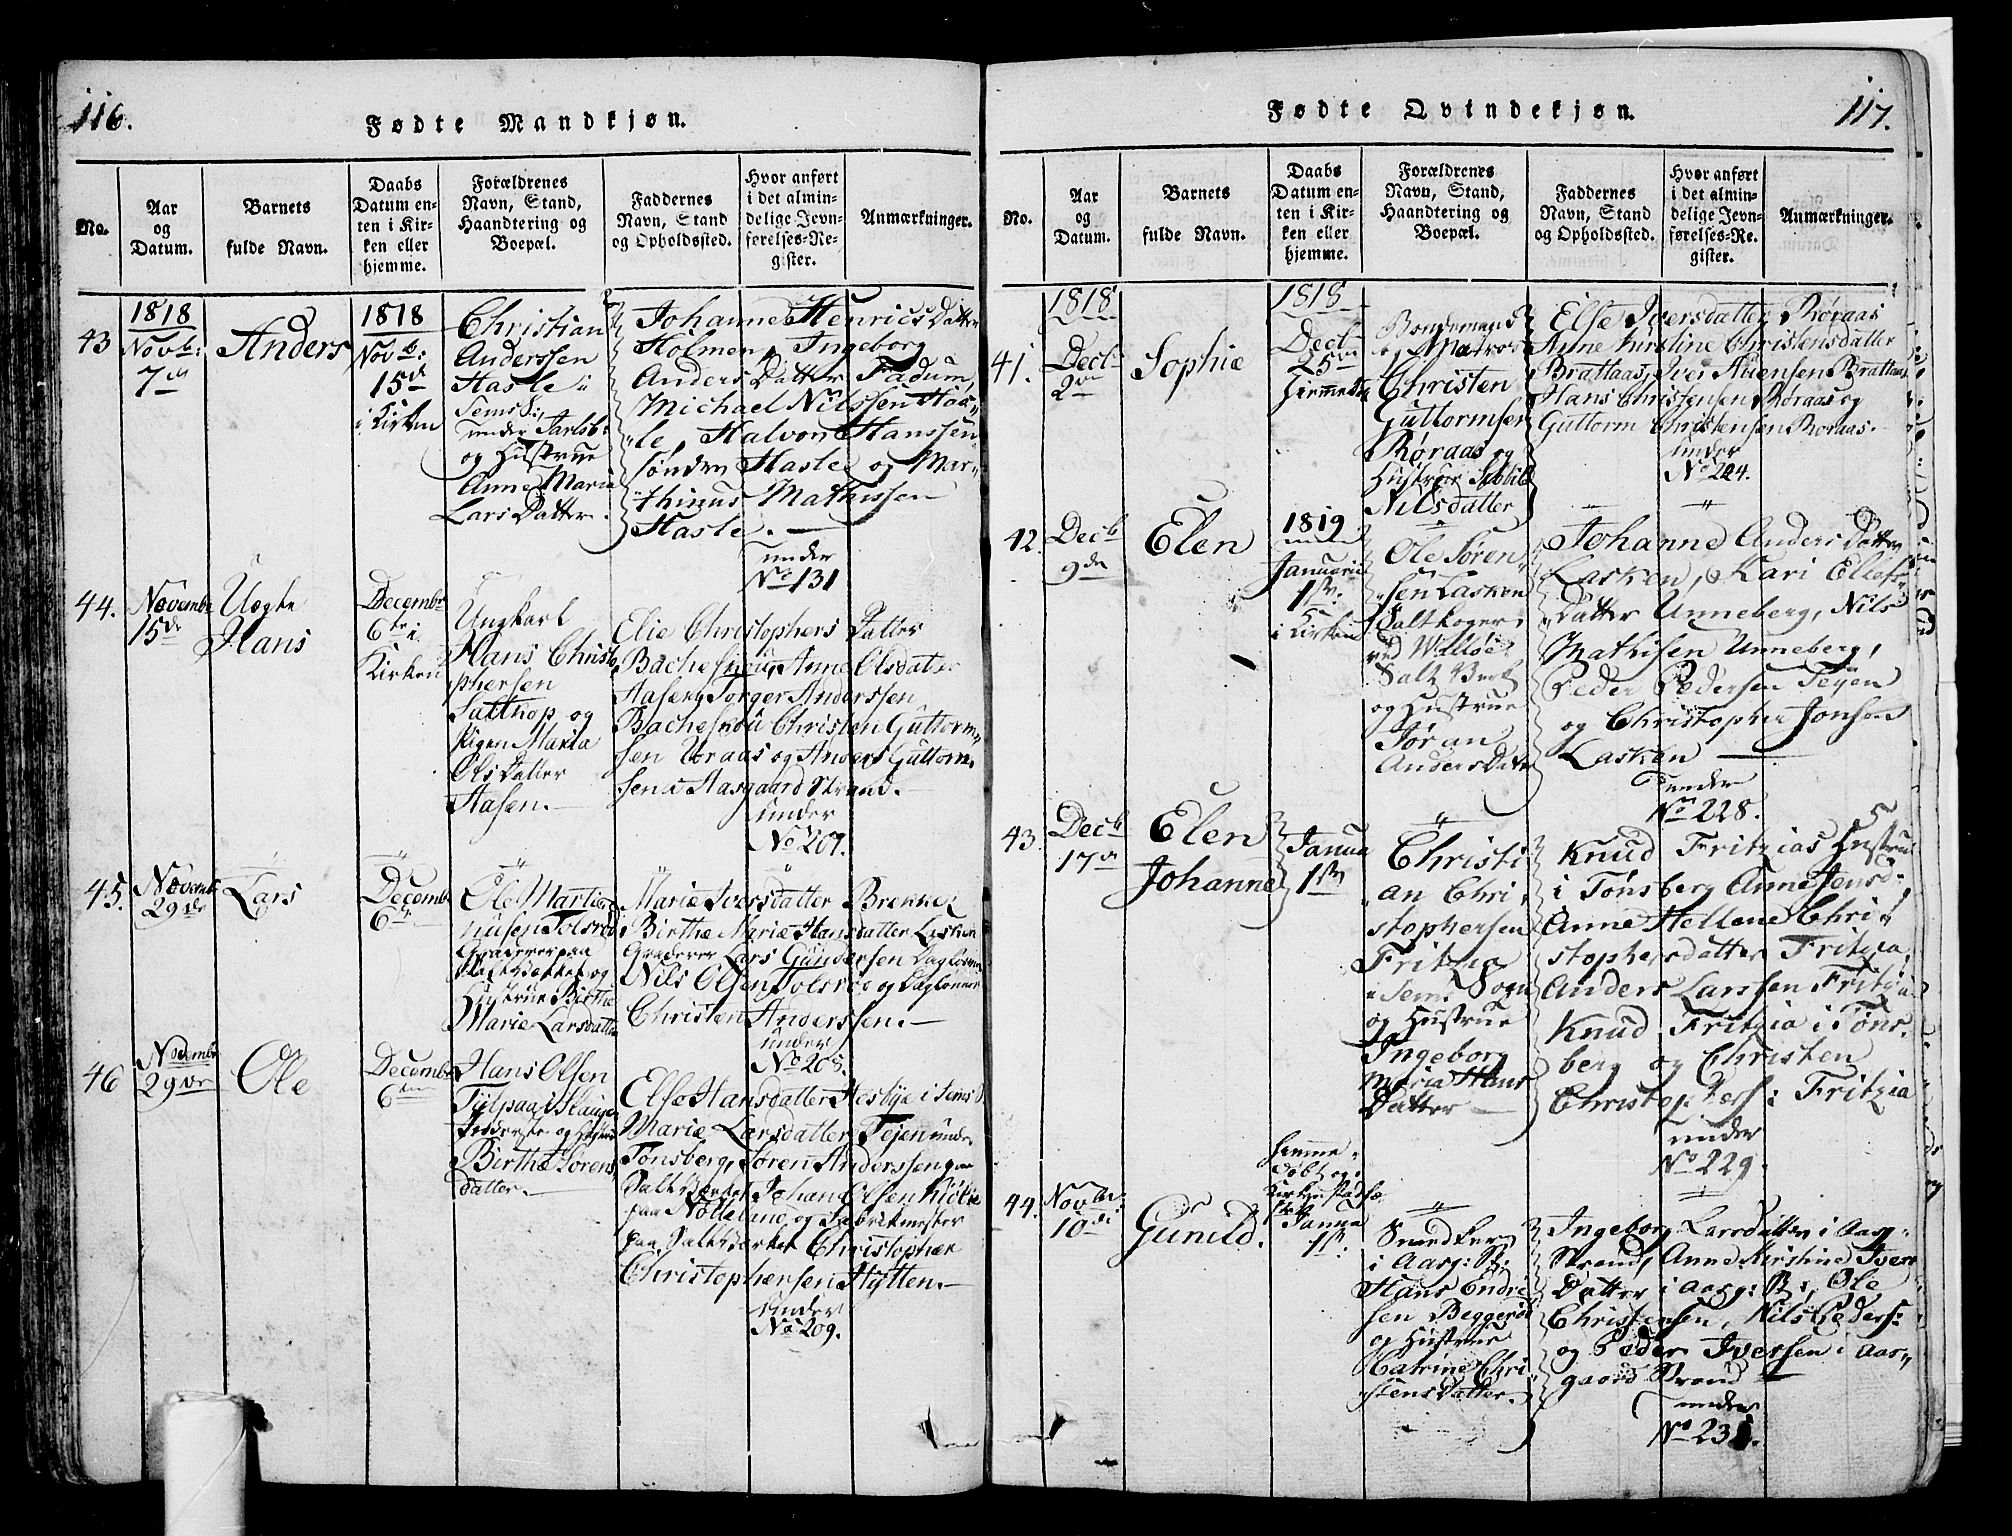 116.
Fødte Mandkjøn.
No.
Aar
og
Datum.
Barnets
fulde Navn.
Daabs
Datum en-
ten i Kir-
ken eller
hjemme.
Forældrenes
Navn, Stand,
Haandtering og
Boepæl.
Faddernes
Navn, Stand
og Opholdssted.
Hvor anført
i det almin-
delige Jevn-
førelses-Re-
gister.
Anmærkninger.
43
1818
Novb:
7de
Anders
1818
Novb:
15de
i Kirken
Christian
Anderssen
Hasle i
Sems S:
under Jarlsb:
og Hustrue
Anne Maria
Lars Datter.
Johanne Henrics Datter
Holmen, Ingeborg
Anders Datter Fadum,
Michael Nilssen Has„
„le, Halvor Hanssen
sønden Hasle og Mar„
„thinus Mathissen
Hasle.
under
No 131
44.
Novembr
15de
Uægte
Hans
Decembr
6te i
Kirken
Ungkarl
Hans Christo
phersen
Saltkop og
Pigen Maria
Ols Datter
Aasen.
Elie Christophers Datter
Bacheskou, Anne Olsdatter
Aasen, Torger Anderssen
Bacheskou Christen Guttorm„
sen Uraas og Anders Guttorm„
sen Aasgaard Strand.
under
No 207.
45.
Novemb
29de
Lars
Decemb
6te
Ole Marti
nusen Tolsrød
Graverer paa
Saltværket og
Hustrue Birthe
Marie Larsdatter
Marie Iversdatter Brekke
Birthe Marie Hansdatter Lasken
Graverer Lars Gundersen Daglønner
Nils Olsen Tolsrød og Daglønner
Christen Anderssen.
under
No 208.
46
Novembr
29de
Ole
Decembr
6te
Hans Olsen
og Hustrue
Birthe Sørens
datter.
Else Hansdatter Hesbye i Sems S
Marie Larsdatter Tejen under
Tønsberg, Søren Anderssen paa
Saltværket, Johan Olsen
paa Nøtteland og Fabrikmester
paa Saltværket Christopher
Christophersen Hytten.
under
No 209.
117.
Fødte Qvindekjøn.
No.
Aar
og
Datum.
Barnets
fulde Navn.
Daabs
Datum en-
ten i Kir-
ken eller
hjemme.
Forældrenes
Navn, Stand,
Haandtering og
Boepæl.
Faddernes
Navn, Stand
og Opholdssted.
Hvor anført
i det almin-
delige Jevn-
førelses-Re-
gister.
Anmærkninger.
41.
1818
Decb:
2den
Sophie
1818
Decb:
25de
hjemmedøbt
Bondemand
og Matros
Christen
Guttormsen
Røraas og
Hustrue Sibille
Nilsdatter
Else Iversdatter Røraas
Anne Kirstine Christensdatter
Brattaas, Iver Brattaas
Hans Christensen Røraas og
Guttorm Christensen Røraas.
under
No 224.
42.
Decb
9de
Elen
1819
Januarii
1ste
i Kirken
Ole Søren„
„sen Lasken
Saltkoger
ved Walløe
Salt Værk
og Hustrue
Jøran
Anders Datter
Johanne Anders Datter
Lasken, Kari Ellefs
Datter Unneberg, Nils
Mathisen Unneberg,
Peder Pedersen Tejen
og Christopher Jonsen
Lasken
under
No 228.
43.
Decb
17de
Elen
Johanne
Janua
1ste
Christi
„an Chri„
stophersen
Fritzia
i Sems Sogn
og Hustrue
Ingeborg
Maria Hans
Datter
Knud Fritzias Hustrue
i Tønsberg Anne Jensd:
Anne Hellene Chri„
stophersdatter Fritzia,
Anders Larssen Fritzia
Knud Fritzia i Tøns„
berg og Christen
Christophers: Fritzia
under
No 229.
44.
Novbr:
10de
Gunild.
hjemme„
døbt og
Janua
1ste
Snedker
i Aasg: St:
Hans Endre
sen Beggerød
og Hustrue
Catrine Chri
„stens Datter.
Ingeborg Larsdatter i Aasg„
Strand, Anne Kirstine Ivers
Datter i Aasg: St:, Ole
Christensen, Nils Peders:
og Peder Iversen i Aas„
gaard Strand
under
No 231.